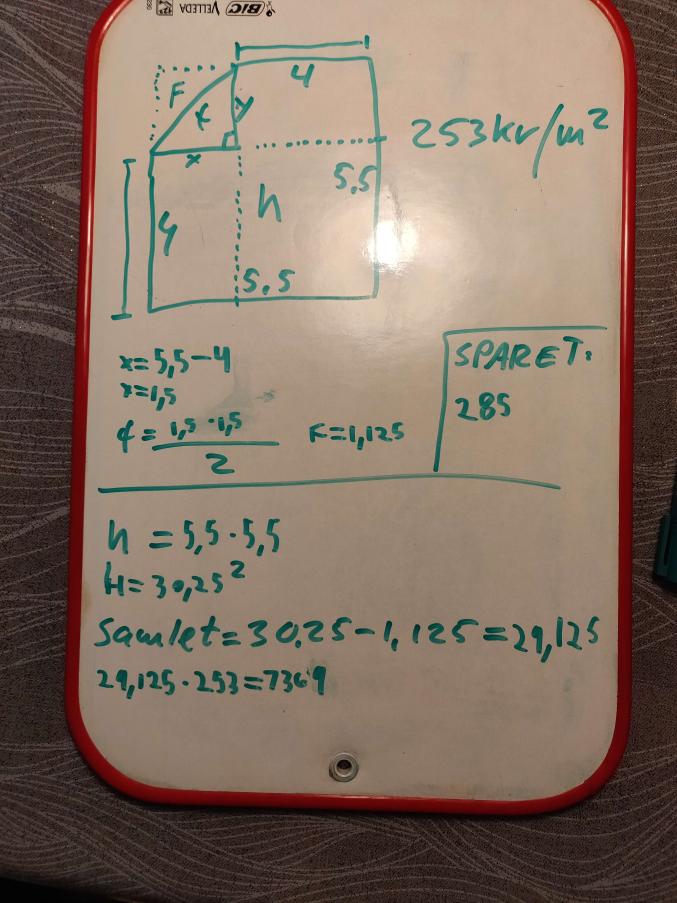 BIC VELLEDA
4
F
f
y
x
253kr/m²
5,5
h
4
5.5
x=5,5-4
x=1,5
f=1,5·1,5
2
F=1,125
SPARET:
285
h =5,5·5,5
H=30,25²
Samlet=30.25-1,125=29,125
29,125·253=7369